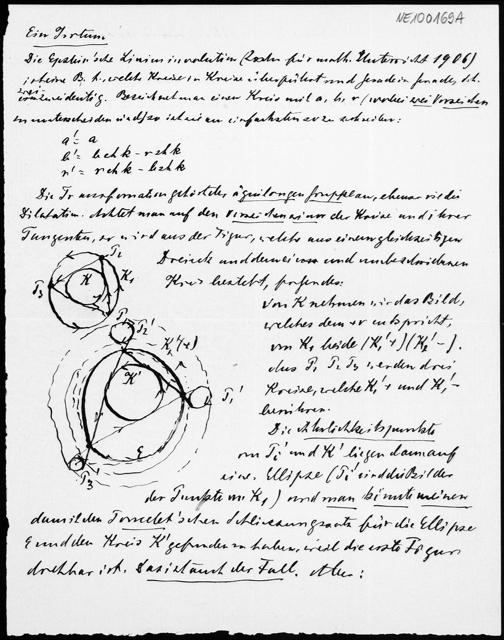 NE100169A
Ein Irrtum.
Die Epstein'sche Linieninvolution (für math. Unterricht 1906)
ist eine B. t., welche Kreise in Kreise überführt und Gerade in Gerade, d.h.
zwei eindeutig. Bezeichnet man einen Kreis mit a, b, r (wobei zwei Vorzeichen
zu unterscheiden sind) so ist sie am einfachsten so zu schreiben:
a' = a
b' = b ch k - r sh k
r' = r ch k - b sh k
Die Transformation gehört der äquilongen Gruppe an, ebenso wie die
Dilatation. Achtet man auf den Umzeichensinn der Kreise und ihrer
Tangenten, so wird aus der Figur, welche aus einem gleichseitigen
Dreieck und dem einem und umbeschriebenen
Kreis besteht, folgendes:
von K nehmen wir das Bild,
welches dem +r entspricht,
von K₁ beide (K₁'+) (K₁'-).
Aus T₁ T₂ T₃ werden drei
Kreise, welche K₁'+ und K₁'-
berühren.
Die Ähnlichkeitspunkte
von Ti' und K' liegen dann auf
einer Ellipse (Ti' sind die Bilder
der Punkte von K₁) und man könnte meinen
damit den Poncelet'schen Schliessungssatz für die Ellipse
E und den Kreis K' gefunden zu haben, weil die erste Figur
drehbar ist. Das ist auch der Fall. Aber:
T₂
K
K₁
T₃
T₁
T₂'
K₁'(+)
K'
T₁'
E
T₃'